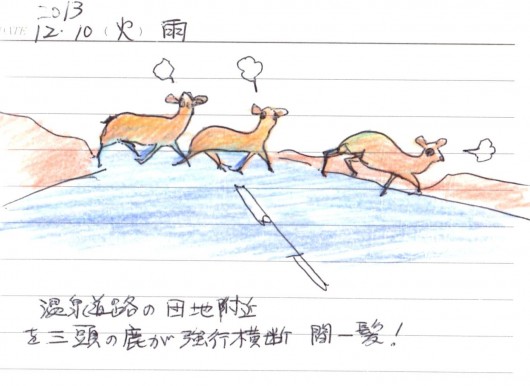 2013
DATE 12・10（火）雨
温泉道路の団地附近
を三頭の鹿が強行横断 間一髪！